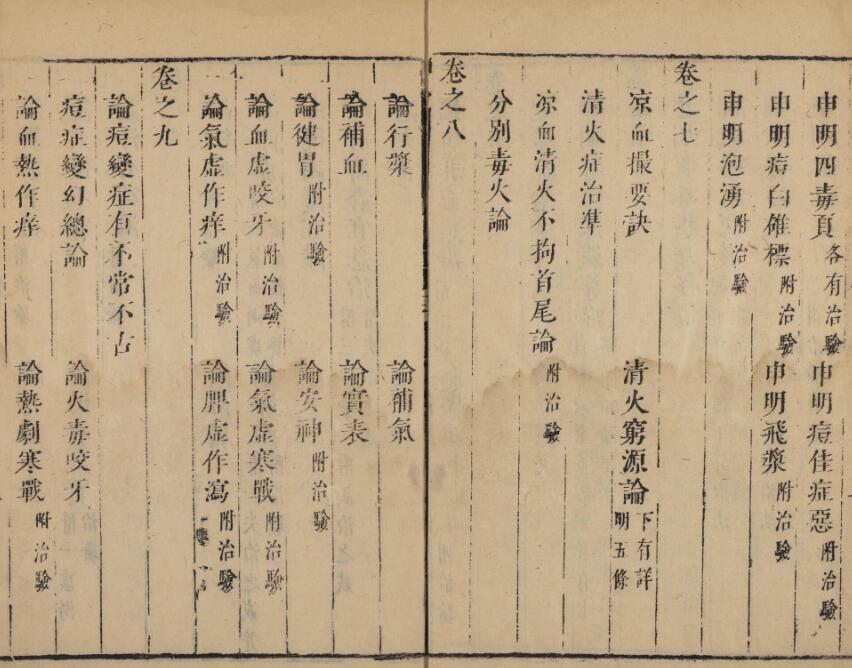 申明四毒頁各有治驗 申明痘佳症惡附治驗
申明痘白傩標附治驗 申明飛漿附治驗
申明泡湧附治驗
卷之七
凉血撮要訣 清火窮源論下有詳明五條
清火症治準
凉血清火不拘首尾論附治驗
分別毒火論
卷之八
論行漿 論補氣
論補血 論實表
論健胃附治驗 論安神附治驗
論血虛咬牙附治驗 論氣虛寒戰附治驗
論氣虛作痒附治驗 論脾虛作瀉附治驗
卷之九
論痘變症有不常不古
痘症變幻總論 論火毒咬牙
論血熱作痒 論熱劇寒戰附治驗